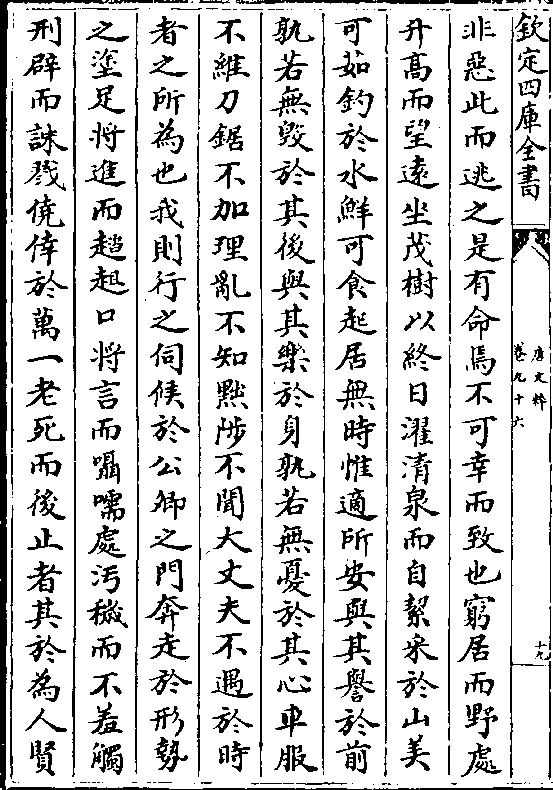 欽定四庫全書
唐文粹
卷九十六
十九
非惡此而逃之是有命焉不可幸而致也窮居而野處
升高而望遠坐茂樹以終日濯清泉而自潔采於山美
可茹釣於水鮮可食起居無時惟適所安與其譽於前
孰若無毀於其後與其樂於身孰若無憂於其心車服
不維刀鋸不加理亂不知黜陟不聞大丈夫不遇於時
者之所為也我則行之伺候於公卿之門奔走於形勢
之塗足將進而趦趄口將言而囁嚅處汚穢而不羞觸
刑辟而誅戮僥倖於萬一老死而後止者其於為人賢